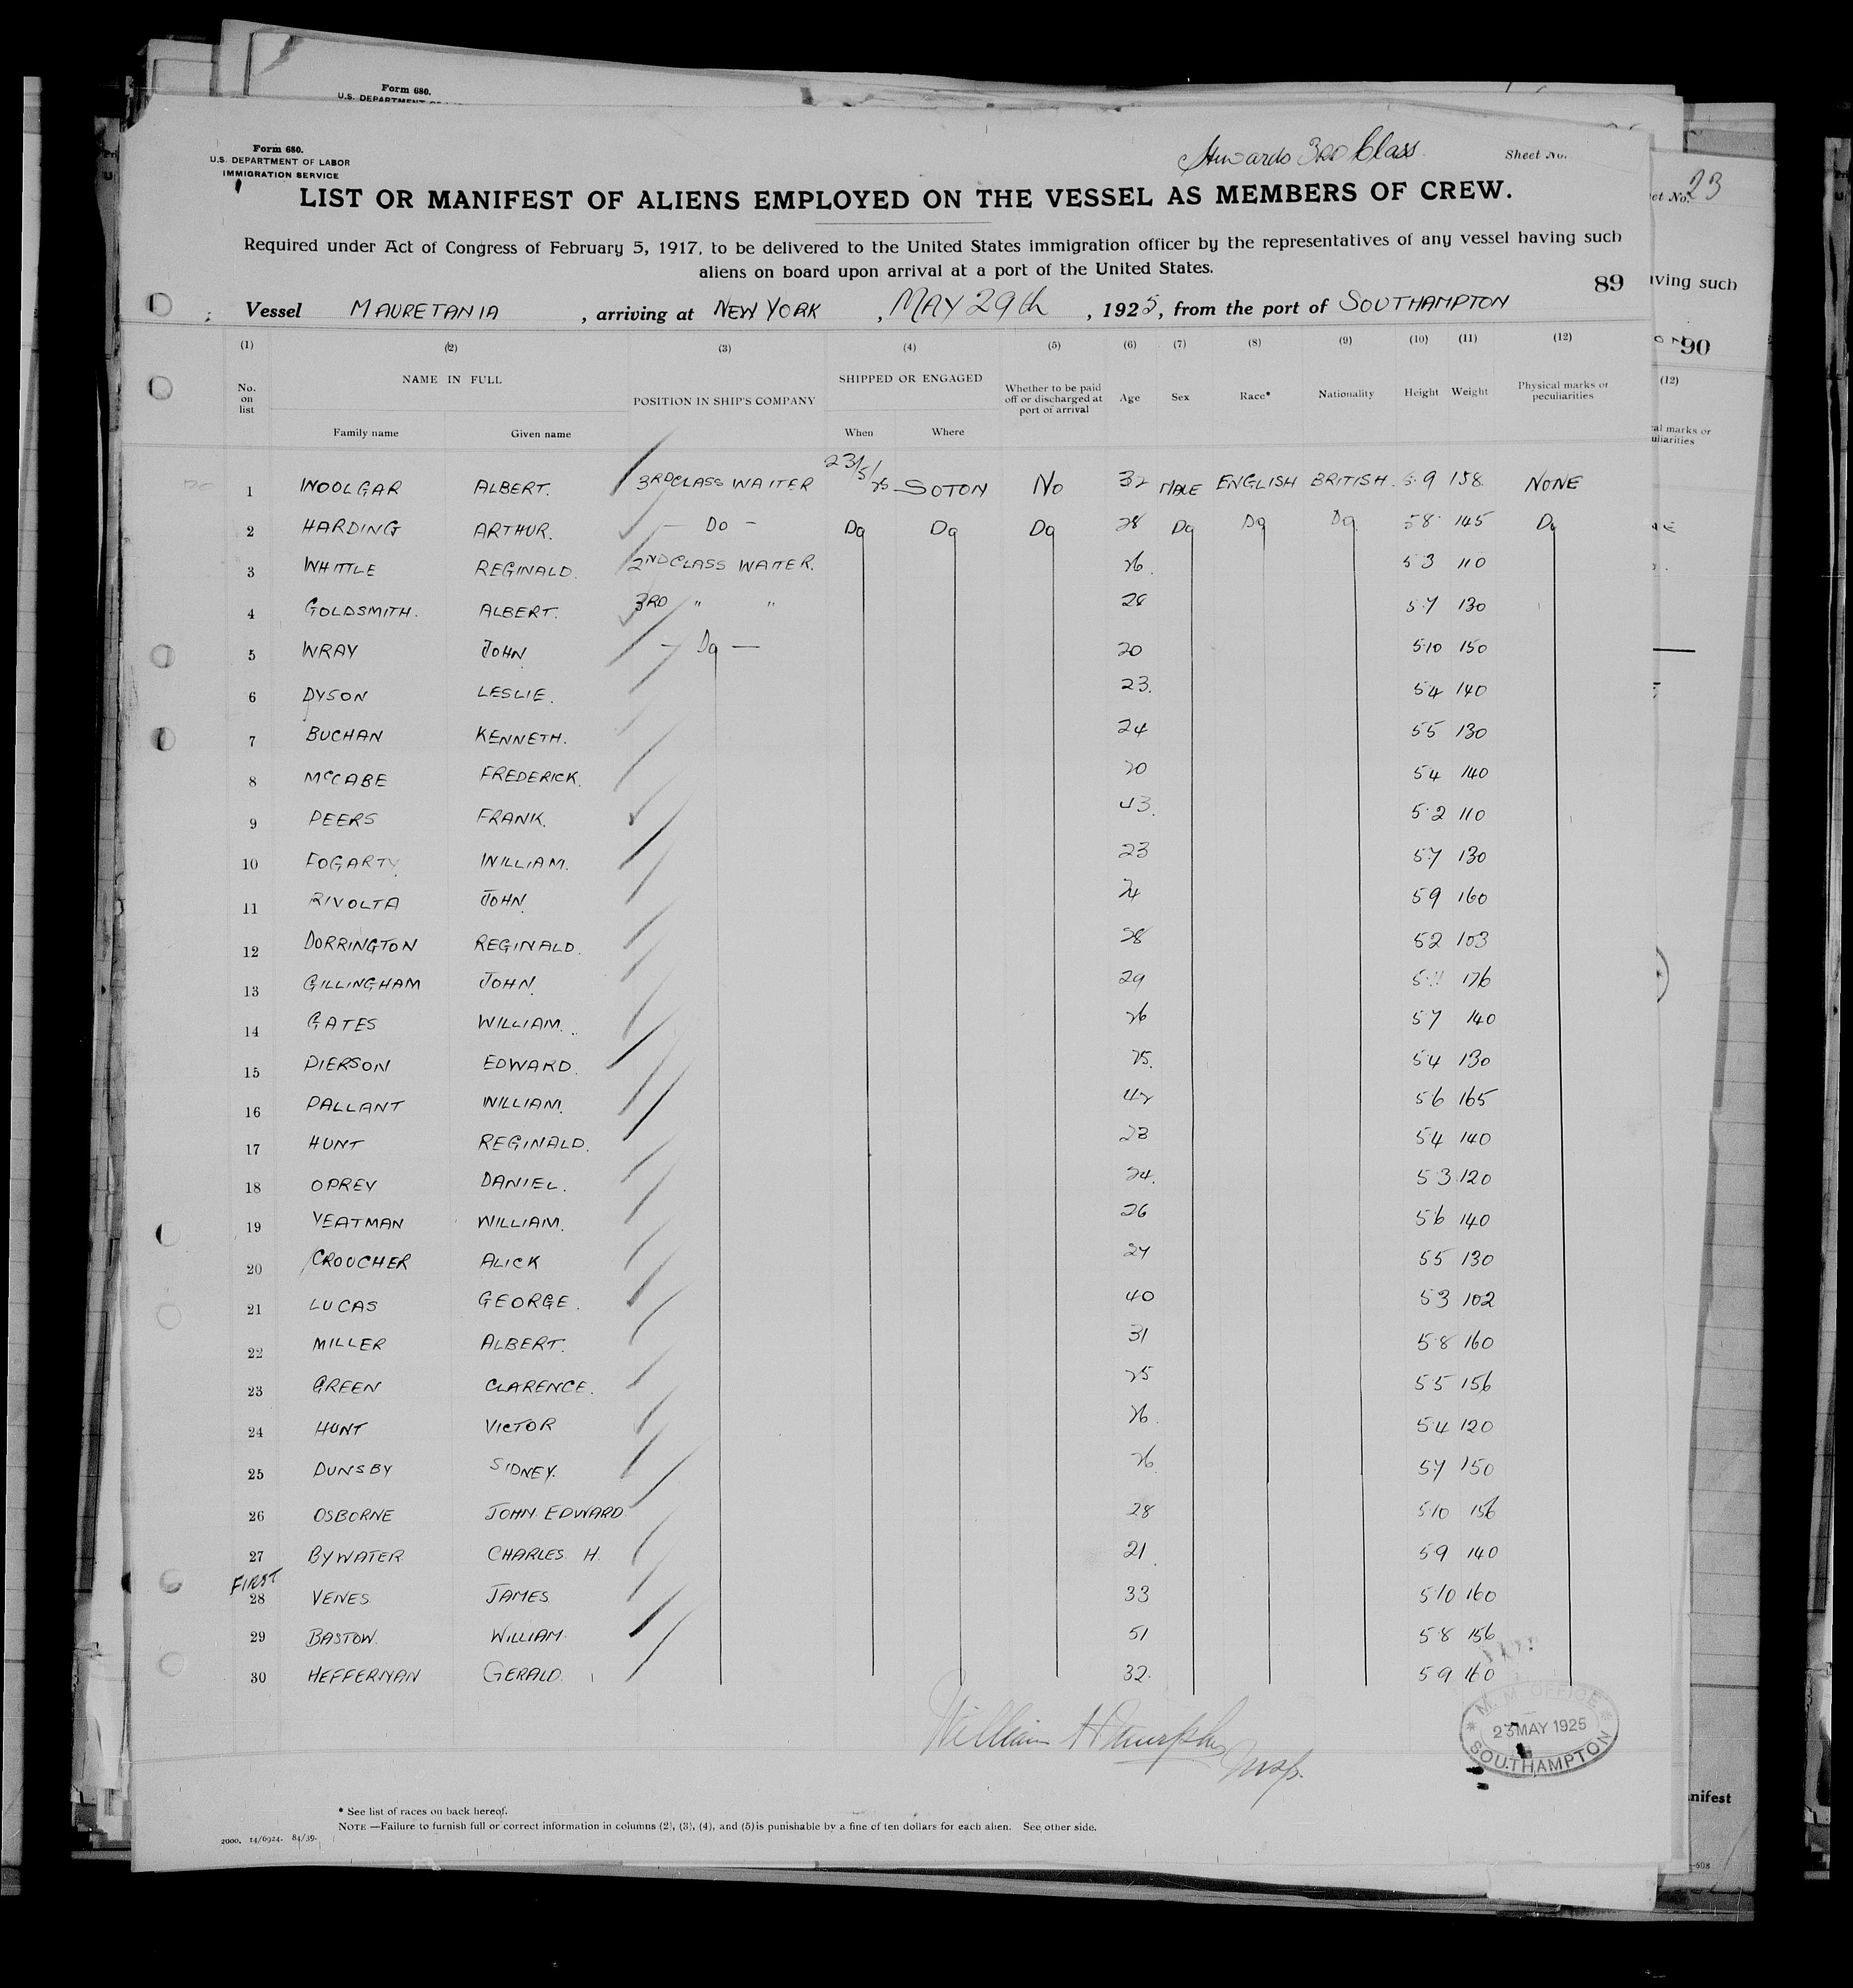 Form 680.
U.S. DEPARTMENT OF
Form 680.
U.S. DEPARTMENT OF LABOR
IMMIGRATION SERVICE
Stewards 3RD Class.
Sheet No.
LIST OR MANIFEST OF ALIENS EMPLOYED ON THE VESSEL AS MEMBERS OF CREW.
Required under Act of Congress of February 5, 1917, to be delivered to the United States immigration officer by the representatives of any vessel having such
aliens on board upon arrival at a port of the United States.
89
Vessel MAURETANIA, arriving at NEW YORK, MAY 29th, 1925, from the port of SOUTHAMPTON
(1) (2) (3) (4) (5) (6) (7) (8) (9) (10) (11) (12)
No. on list NAME IN FULL POSITION IN SHIP'S COMPANY SHIPPED OR ENGAGED Whether to be paid off or discharged at port of arrival Age Sex Race* Nationality Height Weight Physical marks or peculiarities
Family name Given name When Where
1 WOOLGAR ALBERT. 3RD CLASS WAITER 23/5/25 SOTON No 32 MALE ENGLISH BRITISH. 5.9 158 NONE
2 HARDING ARTHUR. — Do — Do Do Do 28 Do Do Do 5 8 145 Do
3 WHITTLE REGINALD. 2ND CLASS WAITER. 26. 5 3 110
4 GOLDSMITH. ALBERT. 3RD " " 28 5.7 130
5 WRAY JOHN — Do — 20 5.10 150
6 DYSON LESLIE. 23. 5 4 140
7 BUCHAN KENNETH. 24 5 5 130
8 McCABE FREDERICK. 20 5 4 140
9 PEERS FRANK. 43. 5.2 110
10 FOGARTY WILLIAM. 23 5.7 130
11 RIVOLTA JOHN. 24 5 9 160
12 DORRINGTON REGINALD. 28 5 2 103
13 GILLINGHAM JOHN. 29 5.11 176
14 GATES WILLIAM. 26 5 7 140
15 PIERSON EDWARD. 25. 5.4 130
16 PALLANT WILLIAM. 42 5 6 165
17 HUNT REGINALD. 23 5.4 140
18 OPREY DANIEL. 24. 5 3 120
19 YEATMAN WILLIAM. 26 5.6 140
20 CROUCHER ALICK 27 5 5 130
21 LUCAS GEORGE. 40 5 3 102
22 MILLER ALBERT. 31 5.8 160
23 GREEN CLARENCE. 25 5.5 156
24 HUNT VICTOR 26. 5.4 120
25 DUNSBY SIDNEY. 26. 5.7 150
26 OSBORNE JOHN EDWARD 28 5.10 156
27 BYWATER CHARLES H. 21. 5.9 140
FIRST
28 VENES JAMES 33 5.10 160
29 BASTOW. WILLIAM. 51 5 8 156
30 HEFFERNAN GERALD. 32. 5 9 160
William H Murphy
Insp.
M. M. OFFICE
23 MAY 1925
SOUTHAMPTON
* See list of races on back hereof.
NOTE —Failure to furnish full or correct information in columns (2), (3), (4), and (5) is punishable by a fine of ten dollars for each alien. See other side.
2000. 14/6924. 84/39.
et No. 23
ving such
90
(12)
al marks or
uliarities
nifest
-608